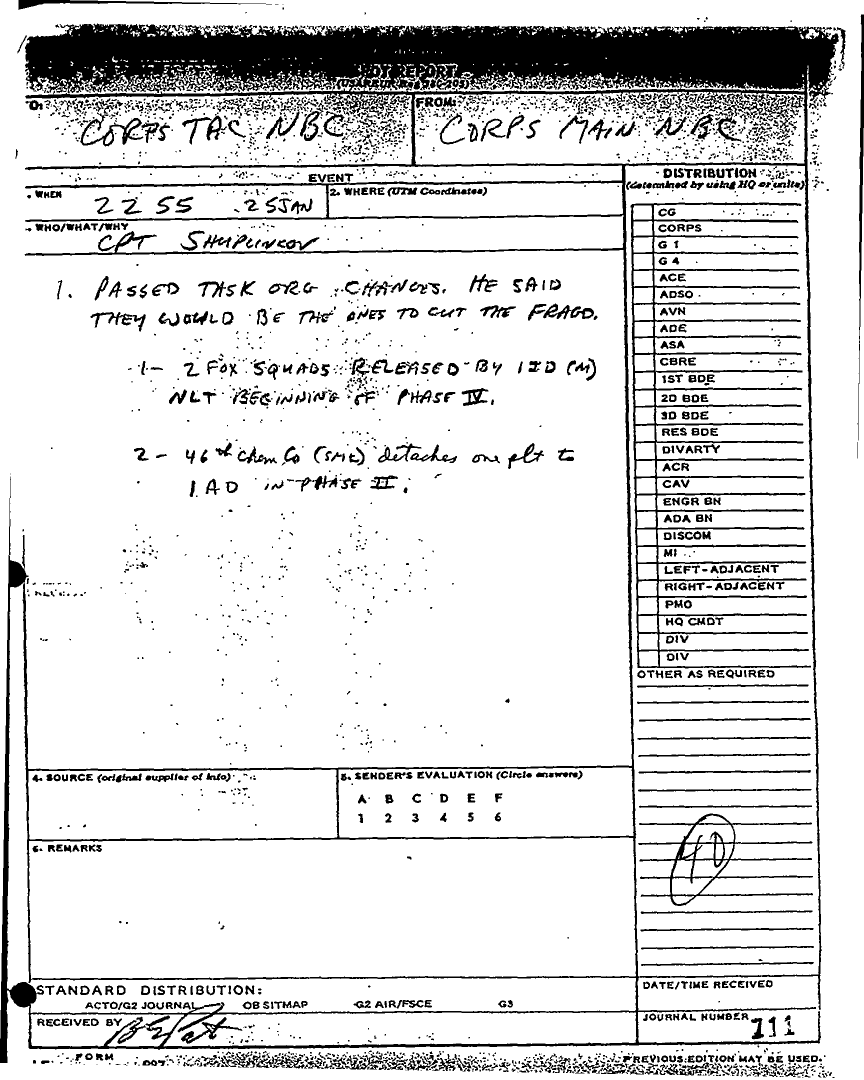 OT REPORT
O:
FROM:
CORPS TAC NBC
CORPS MAIN NBC
EVENT
. WHEN
2255 25JAN
2. WHERE (UTM Coordinates)
. WHO/WHAT/WHY
CPT
1. PASSED TASK ORG CHANGES. HE SAID
THEY WOULD BE THE ONES TO CUT THE FRAGO.
1- 2 FOX SQUADS RELEASED BY 1ID (M)
NLT BEGINNING OF PHASE IV.
2- 46th Chem Co (SMK) detaches one plt to
1AD IN PHASE II.
DISTRIBUTION
(determined by using HQ or units)
CG
CORPS
G 1
G 4
ACE
ADSO
AVN
ADE
ASA
CBRE
1ST BDE
2D BDE
3D BDE
RES BDE
DIVARTY
ACR
CAV
ENGR BN
ADA BN
DISCOM
MI
LEFT-ADJACENT
RIGHT-ADJACENT
PMO
HQ CMDT
DIV
DIV
OTHER AS REQUIRED
40
4. SOURCE (original supplier of info)
5. SENDER'S EVALUATION (Circle answers)
A B C D E F
1 2 3 4 5 6
6. REMARKS
STANDARD DISTRIBUTION:
ACTO/G2 JOURNAL OB SITMAP G2 AIR/FSCE G3
RECEIVED BY
DATE/TIME RECEIVED
JOURNAL NUMBER 711
FORM
PREVIOUS EDITION MAY BE USED.